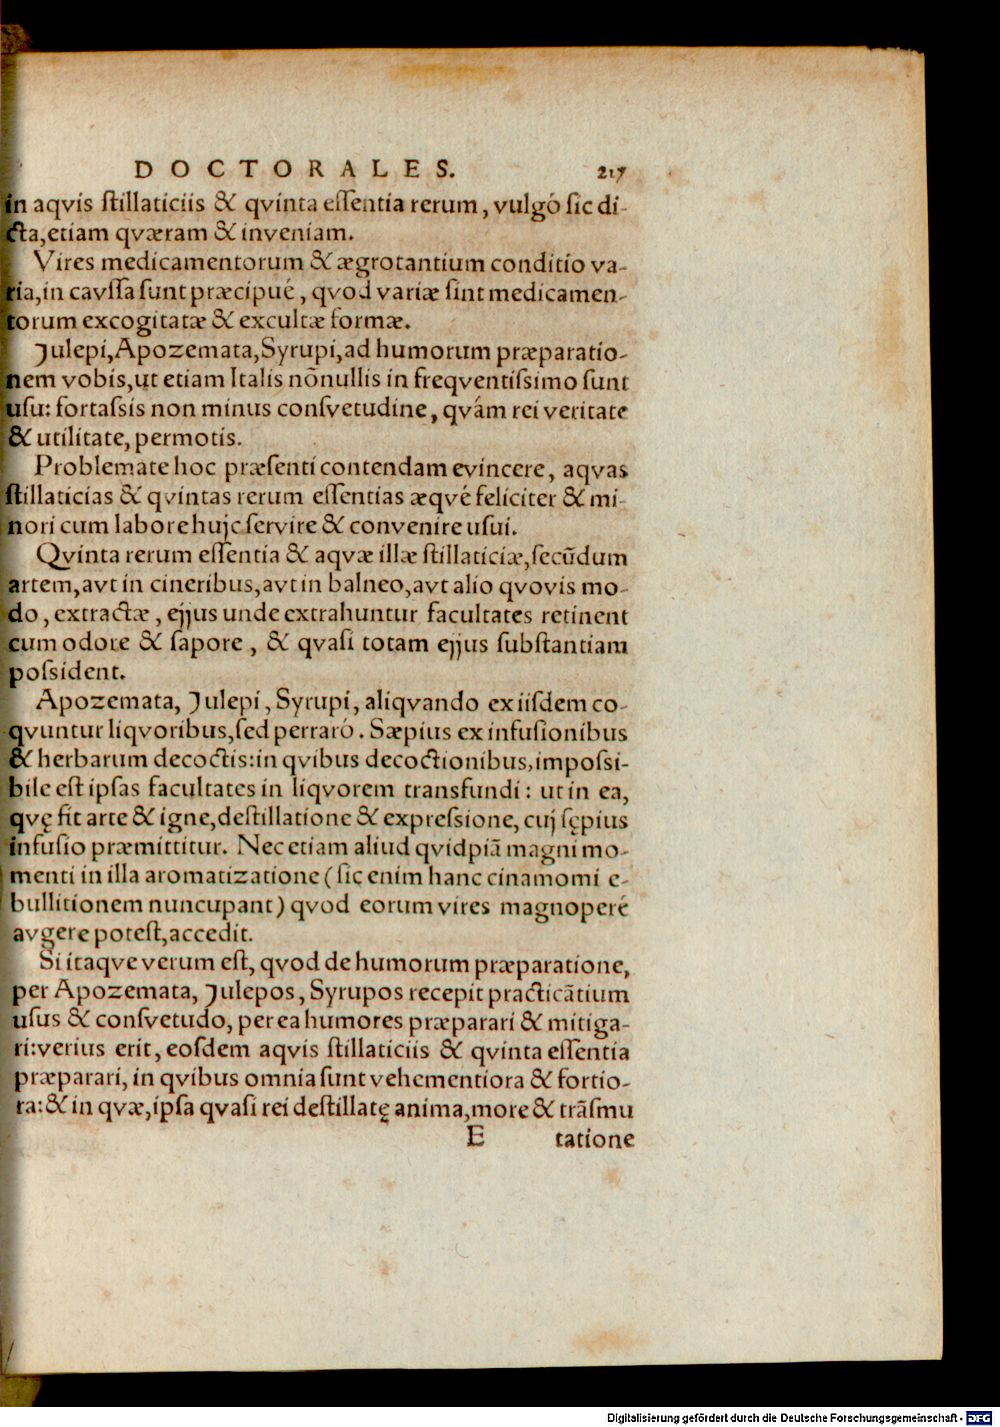 DOCTORALES. 217
in aqvis ſtillaticiis & qvinta eſſentia rerum, vulgó ſic di-
cta, etiam qværam & inveniam.
Vires medicamentorum & ægrotantium conditio va-
ria, in cavſſa ſunt præcipué, qvod variæ ſint medicamen-
torum excogitatæ & excultæ formæ.
Julepi, Apozemata, Syrupi, ad humorum præparatio-
nem vobis, ut etiam Italis nõnullis in freqventiſsimo ſunt
uſu: fortaſsis non minus conſvetudine, qvám rei veritate
& utilitate, permotis.
Problemate hoc præſenti contendam evincere, aqvas
ſtillaticias & qvintas rerum eſſentias æqvé feliciter & mi-
nori cum labore hujc ſervire & convenire uſui.
Qvinta rerum eſſentia & aqvæ illæ ſtillaticiæ, ſecũdum
artem, avt in cineribus, avt in balneo, avt alio qvovis mo-
do, extractæ, ejjus unde extrahuntur facultates retinent
cum odore & ſapore, & qvaſi totam ejjus ſubſtantiam
poſsident.
Apozemata, Julepi, Syrupi, aliqvando ex iiſdem co-
qvuntur liqvoribus, ſed perraró. Sæpius ex infuſionibus
& herbarum decoctis: in qvibus decoctionibus, impoſsi-
bile eſt ipſas facultates in liqvorem transfundi: ut in ea,
qvę fit arte & igne, deſtillatione & expreſsione, cuj ſępius
infuſio præmittitur. Nec etiam aliud qvidpiã magni mo-
menti in illa aromatizatione (ſic enim hanc cinamomi e-
bullitionem nuncupant) qvod eorum vires magnoperé
avgere poteſt, accedit.
Si itaqve verum eſt, qvod de humorum præparatione,
per Apozemata, Julepos, Syrupos recepit practicãtium
uſus & conſvetudo, per ea humores præparari & mitiga-
ri: verius erit, eoſdem aqvis ſtillaticiis & qvinta eſſentia
præparari, in qvibus omnia ſunt vehementiora & fortio-
ra: & in qvæ, ipſa qvaſi rei deſtillatę anima, more & trãſmu
E tatione
Digitalisierung gefördert durch die Deutsche Forschungsgemeinschaft - DFG